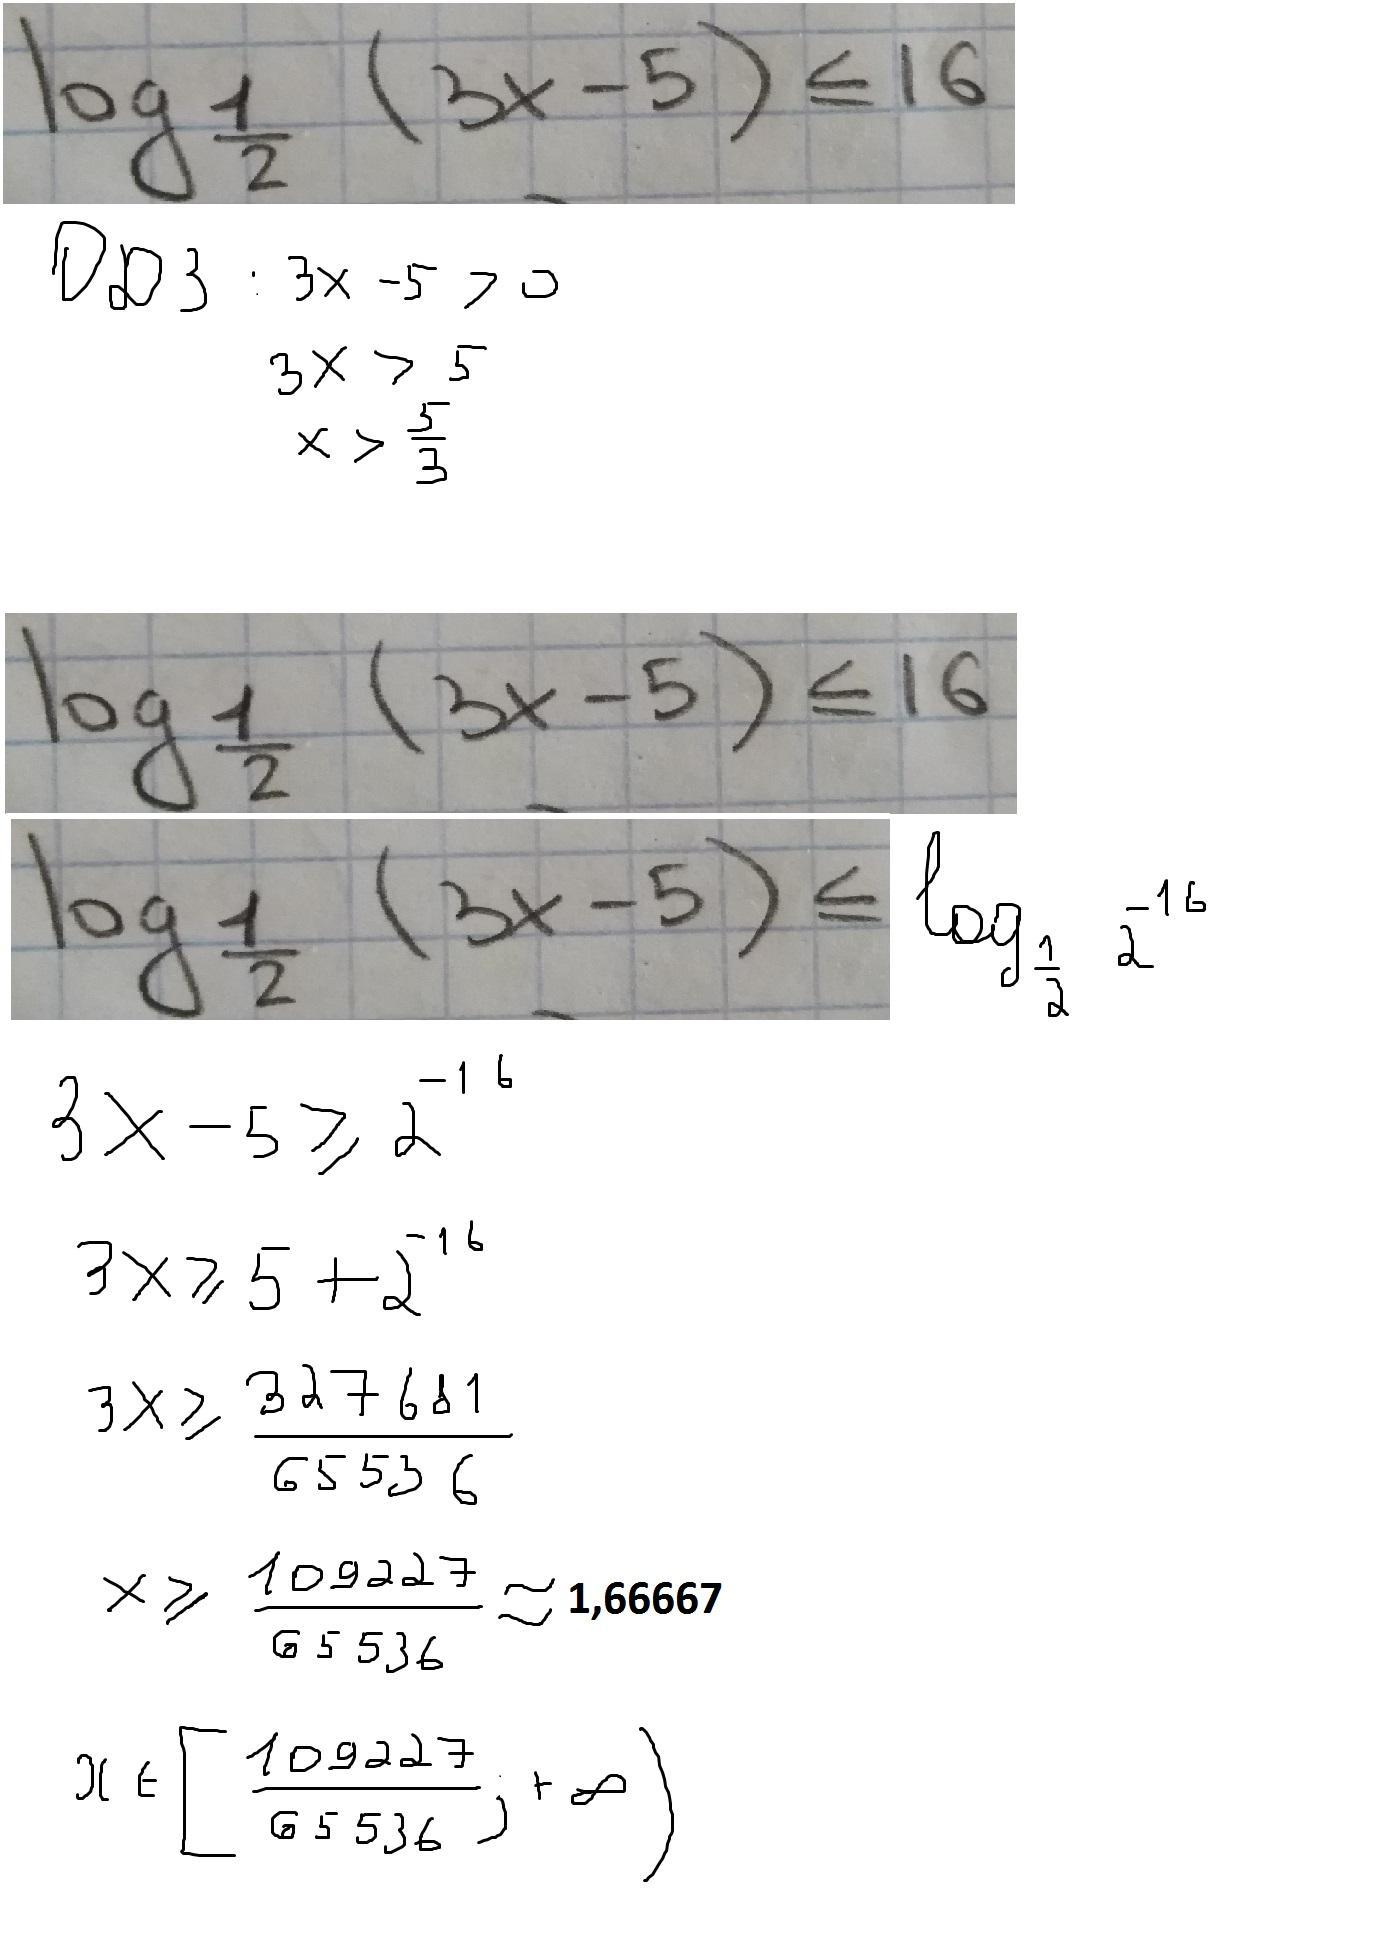 log 1/2 (3x - 5) ≤ 16
ОДЗ : 3x - 5 > 0
3x > 5
x > 5/3
log 1/2 (3x - 5) ≤ 16
log 1/2 (3x - 5) ≤ log 1/2 2^-16
3x - 5 ≥ 2^-16
3x ≥ 5 + 2^-16
3x ≥ 327681/65536
x ≥ 109227/65536 ≈ 1,66667
x ∈ [109227/65536 ; + ∞)